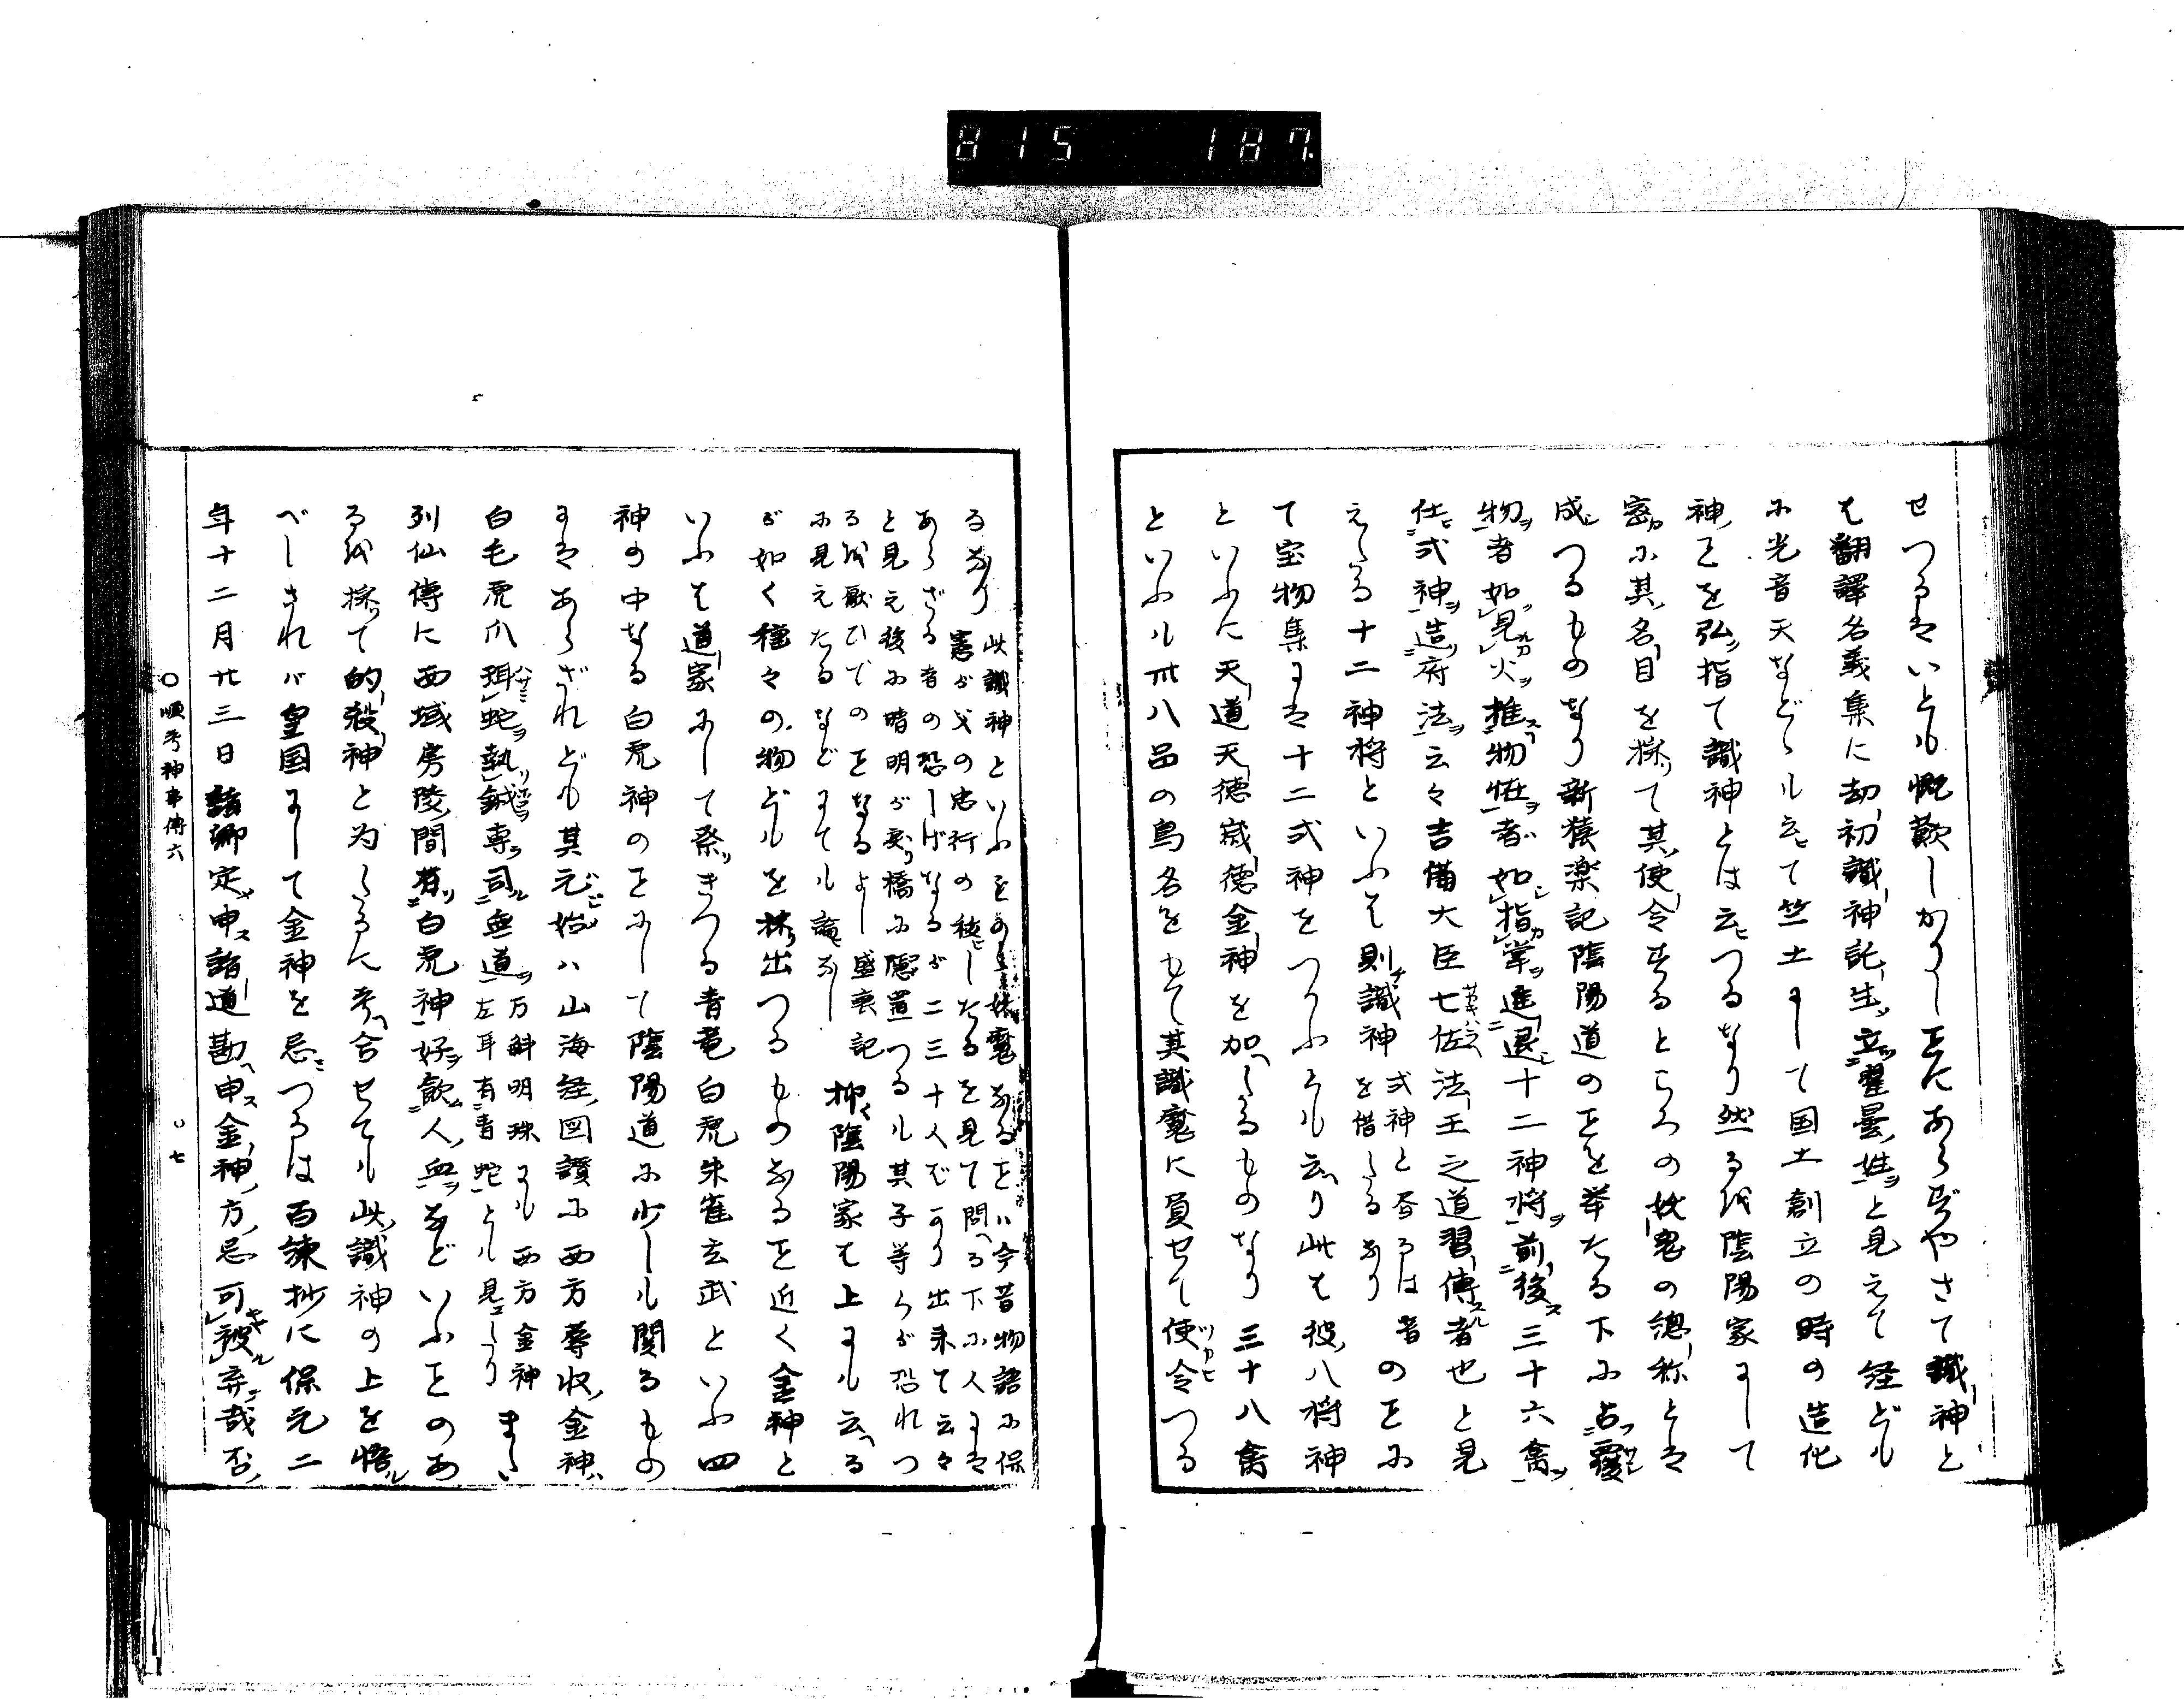 815 187
せつるはいとも慨歎しかりし𪜈にあらずやさて識神と
は翻譯名義集に劫初識神託生立瞿曇姓と見えて経ども
に光音天などゝも云て竺土にして国土創立の時の造化
神𪜈を弘指て識神とは云つるなり然るを陰陽家にして
密に其名目を採て其使令するところの妖鬼の總称とは
成つるものなり新猿楽記陰陽道の𪜈を挙たる下に占覆
物者如見火推物恠者如指掌進退十二神将前後三十六禽
仕式神造府法云々吉備大臣七佐法王之道習傳者也と見
えたる十二神将といふは則識神を借たるなり 式神と書るは音の𪜈に
て宝物集には十二式神をつかふとも云り此は彼八将神
といふに天道天徳歳徳金神を加へたるものなり三十八禽
といふも卅八品の鳥名をもて其識魔に負せて使令つる
るなり 此識神といふを妖魔なる𪜈は今昔物語に保
憲が父の忠行の秡したるを見て問へる下に人には
あらざる者の恐しげなるが二三十人ばかり出来て云々
と見え後に晴明が戻橋に隠置つるも其子等らが恐れつ
るを厭ひての𪜈なるよし盛衰記
に見えたるなどにても論なし 抑陰陽家は上にも云へる
が如く種々の物どもを採出つるものなる𪜈近く金神と
いふは道家にして祭きつる青竜白虎朱雀玄武といふ四
神の中なる白虎神の𪜈にして陰陽道に少しも関るもの
にはあらざれども其元始ハ山海経図讃に西方蓐收金神
白毛虎爪珥蛇執鉞専司無道 左耳有青蛇とも見えたり 万斛明珠にも西方金神 また
列仙傳に西域房陵間有白虎神好飲人血などいふ𪜈のあ
るを採て的殺神と为たるに考合せても此識神の上を悟
べしされバ皇国にして金神を忌つるは百練抄に保元二
年十二月廿三日諸卿定申諸道勘申金神方忌可被弃哉否
〇順考神事傳六 〇七